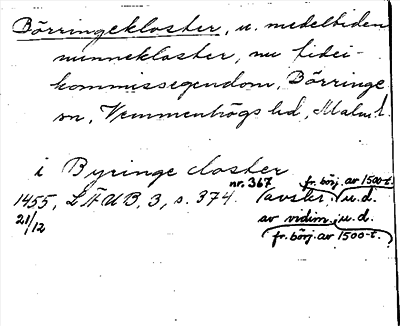 Börringekloster, u. medeltiden
nunnekloster, nu fidei-
kommissegendom, Börringe
sn, Vemmenhögs hd, Malm. l.
i Byringe closter
1455, LÄUB, 3, s. 374. nr. 367 (avskr. fr. börj. av 1500-t. u.d.
21/12 av vidim. u.d.
fr. börj. av 1500-t.)